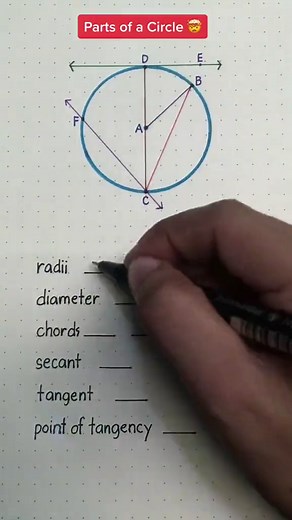 Parts of a Circle 🤯
D
E
B
F
A
C
radii
diameter
chords
secant
tangent
point of tangency